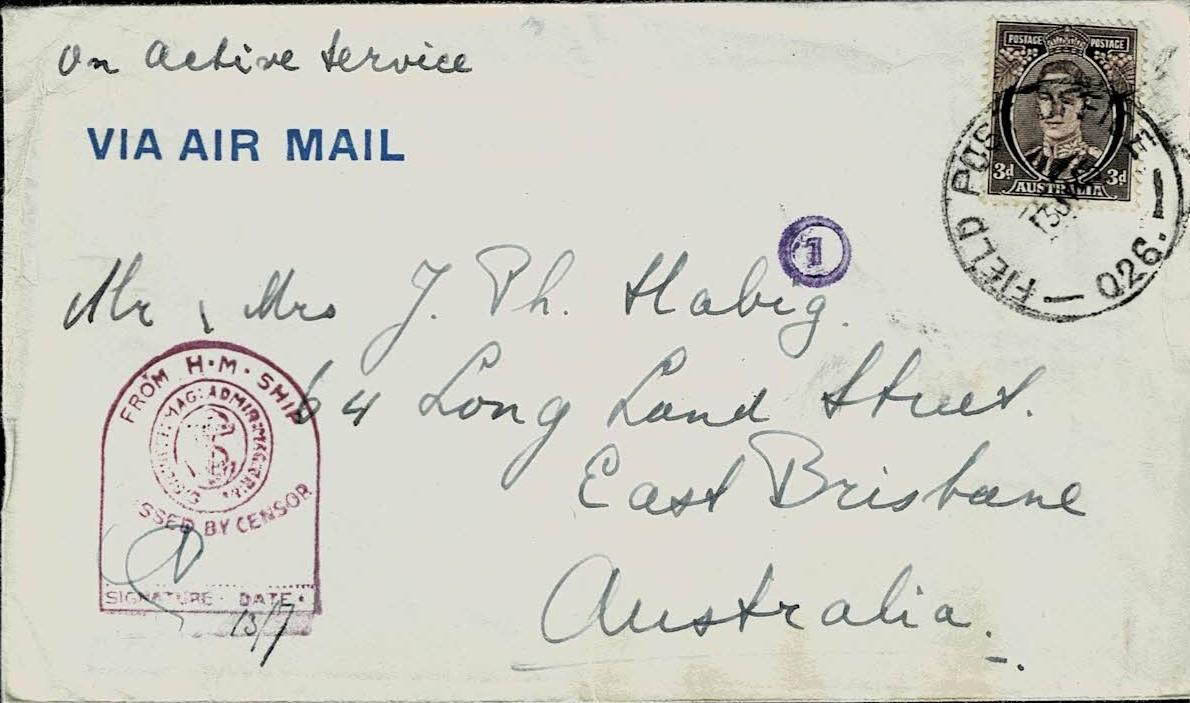 On Active Service
VIA AIR MAIL
POSTAGE POSTAGE
3d 3d
AUSTRALIA
FIELD POST OFFICE
026.
1
Mr & Mrs J. Ph. Habig.
64 Long Land Street.
East Brisbane
Australia.
FROM H·M·SHIP
SSED BY CENSOR
SIGNATURE · DATE ·
13/7